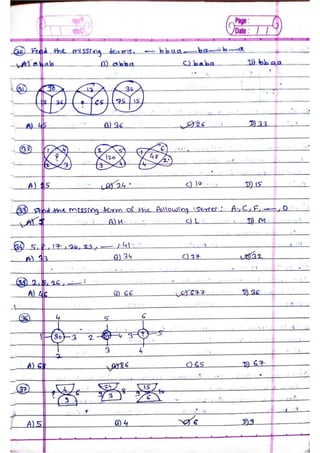 Page :
Date : / /
(30) Find the missing terms. — bbaa — ba — b — a
A) abab B) abba C) baba D) bbaa
(31)
A) 45 B) 36 C) 26 D) 33
120 48
A) 25 B) 24 C) 10 D) 15
(33) Find the missing term of the following series: A, C, F, —, O
A) J B) H C) L D) M
(34) 5, 8, 17, 20, 29, —, 41
A) B) 34 C) 37 D) 32
(35) 2, 5, 26, —
A) 46 B) 66 C) 677 D) 36
(36)
4 5 6
1 30 3 2 4 3 ? 5
2 3 4
A) B) 86 C) 65 D) 67
(37)
A) 5 B) 4 C) 6 D) 9